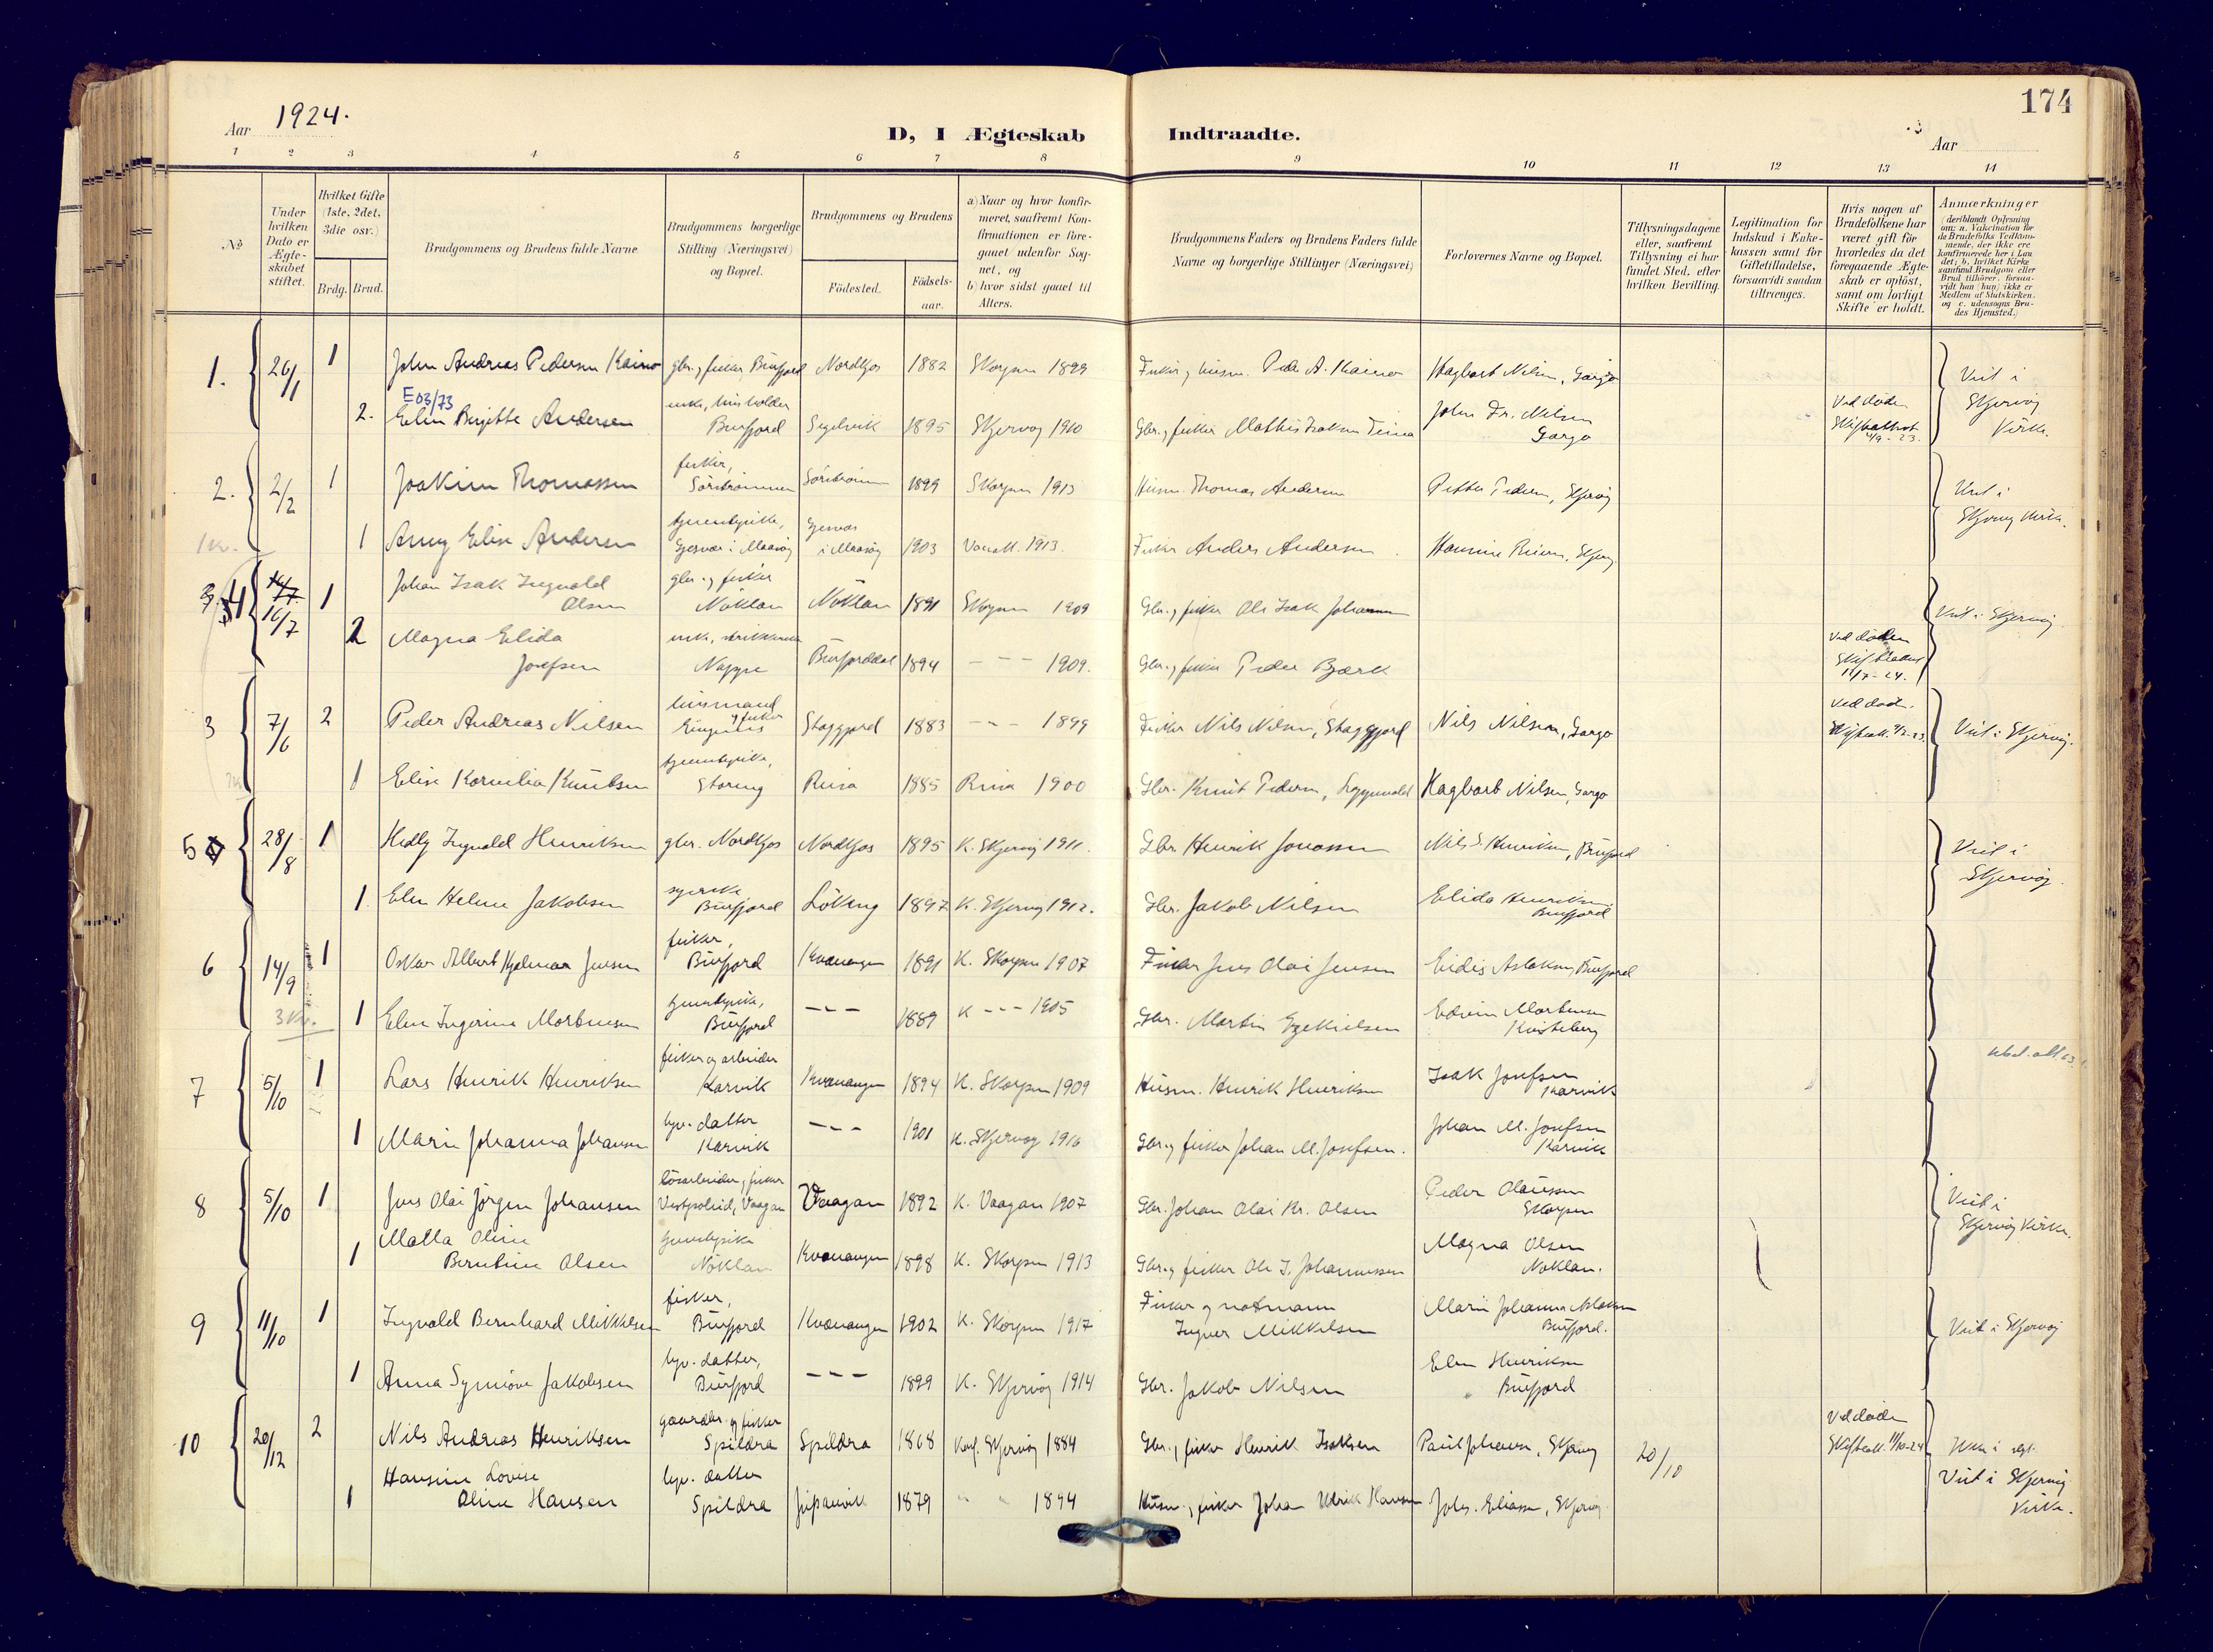 174
Aar 1924.
D, I Ægteskab Indtraadte.
Aar
1 2 3 4 5 6 7 8 9 10 11 12 13 14
No
Under hvilken Dato er Ægteskabet stiftet.
Hvilket Gifte (1ste, 2det, 3die osv.)
Brdg. Brud.
Brudgommens og Brudens fulde Navne
Brudgommens borgerlige Stilling (Næringsvei) og Bopæl.
Brudgommens og Brudens
Fødested.
Fødselsaar.
a) Naar og hvor konfirmeret, saafremt Konfirmationen er foregaaet udenfor Sognet, og
b) hvor sidst gaaet til Alters.
Brudgommens Faders og Brudens Faders fulde Navne og borgerlige Stillinger (Næringsvei)
Forlovernes Navne og Bopæl.
Tillysningsdagene eller, saafremt Tillysning ei har fundet Sted, efter hvilken Bevilling.
Legitimation for Indskud i Enkekassen samt for Giftetilladelse, forsaavidt saadan tiltrænges.
Hvis nogen af Brudefolkene har været gift før hvorledes da det foregaaende Ægteskab er opløst, samt om lovligt Skifte er holdt.
Anmærkninger
(deriblandt Oplysning om: a. Vakcination for de Brudefolks Vedkommende, der ikke ere konfirmerede her i Landet; b. hvilket Kirkesamfund Brudgom eller Brud tilhører, forsaavidt han (hun) ikke er Medlem af Statskirken, og c. udensogns Brudes Hjemsted.)
1. 26/1 1 John Andreas Pedersen Kaino gbr. og fisker, Burfjord Nordkjos 1882 Skorpen 1899 Fisker og husm. Peder A. Kaino Hagbart Nilsen, Gargo Viet i Skjervøy Kirke.
E03/73
2. Elen Birgitte Andersen enke, husholder Burfjord Segelvik 1895 Skjervøy 1910 Gbr. og fisker Mathis Isaksen John Fr. Nilsen Gargo Ved døden
2. 2/2 1 Joakim Thomassen fisker, Sørstrømmen Sørstrømm 1899 Skorpen 1913 Husm. Thomas Andersen Petter Pedersen, Skjervøy Viet i Skjervøy Kirke.
1 Anny Elise Andersen tjenestepike, Gjesvær i Maasøy Gjesvær i Maasøy 1903 1913. Fisker Anders Andersen
4 16/7 1 Johan Isak Ingvald Olsen gbr. og fisker Nøklan Nøklan 1891 Skorpen 1909 Gbr. og fisker Ole Isak Johannes Viet i Skjervøy
2 Magna Elida Josefsen enke, Nappe Burfjorddal 1894 - - - 1909. Gbr. og fisker Peder Bjørk Ved døden 11/7-24.
3 7/6 2 Peder Andreas Nilsen husmand og fisker Staggjord 1883 - - - 1899 Fisker Nils Nilsen, Staggjord Nils Nilsen, Gargo Ved død. Viet i Skjervøy.
1 Elise Kornelia Knutsen tjenestepike, Storeng Reisa 1885 Reisa 1900 Gbr. Knut Pedersen, Hagbart Nilsen, Gargo
5 28/8 1 Hedly Ingvald Henriksen gbr. Nordkjos Nordkjos 1895 K. Skjervøy 1911. Gbr Henrik Jonassen Nils S. Henriksen, Burfjord Viet i Skjervøy.
1. Elen Helene Jakobsen syerske Burfjord Løkeng 1897 K. Skjervøy 1912. Gbr. Jakob Nilsen Elida Henriksen Burfjord
6 14/9 1 Oskar Albert Hjalmar Jensen fisker, Burfjord Kvænangen 1891 K. Skorpen 1907 Fisker Jens Olai Jensen Eidis Aslaksen, Burfjord
3 Kv. 1 Elen Ingerine Mortensen tjenestepike, Burfjord - - - 1889 K - - - 1905 Gbr. Martin Ezekielsen Edvin Mortensen
7 5/10 1 Lars Henrik Henriksen fisker og arbeider Karvik Kvænangen 1894 K. Skorpen 1909 Husm. Henrik Henriksen Isak Josefsen Karvik
1 Marie Johanna Johansen hjv. datter Karvik - - - 1901 K. Skjervøy 1916 Gbr. og fisker Johan M. Josefsen. Johan M. Josefsen Karvik
8 5/10 1 Jens Olai Jørgen Johansen løsarbeider, fisker Vestpolnd, Vaagan Vaagan 1892 K. Vaagan 1907 Gbr. Johan Olai Kr. Olsen Peder Olaussen Skorpen Viet i Skjervøy Kirke.
1 Malla Oline Berntine Olsen tjenestepike Nøklan Kvænangen 1898 K. Skorpen 1913 Gbr. og fisker Ole I. Johannessen Magna Olsen Nøklan.
9 11/10 1 Ingvald Bernhard Mikkelsen fisker, Burfjord Kvænangen 1902 K. Skorpen 1917 Fisker og notmann Ingver Mikkelsen Marie Johanna Aslaksen Burfjord. Viet i Skjervøy
1 Anna Synnøve Jakobsen hjv. datter, Burfjord - - - 1899 K. Skjervøy 1914 Gbr. Jakob Nilsen Elen Henriksen Burfjord
10 20/12 2 Nils Andreas Henriksen gaardbr. og fisker Spildra Spildra 1868 Konf. Skjervøy 1884 Gbr. og fisker Henrik Isaksen Paul Johansen, Skjervøy 20/10 Ved døden Skifteatt. 11/10-24 Viet i Skjervøy Kirke.
1 Hansine Lovise Oline Hansen hjv. datter Spildra Jøpanvik 1879 " " 1894 Husm. og fisker Johan Ulrik Hansen Johs. Eliassen, Skjervøy.